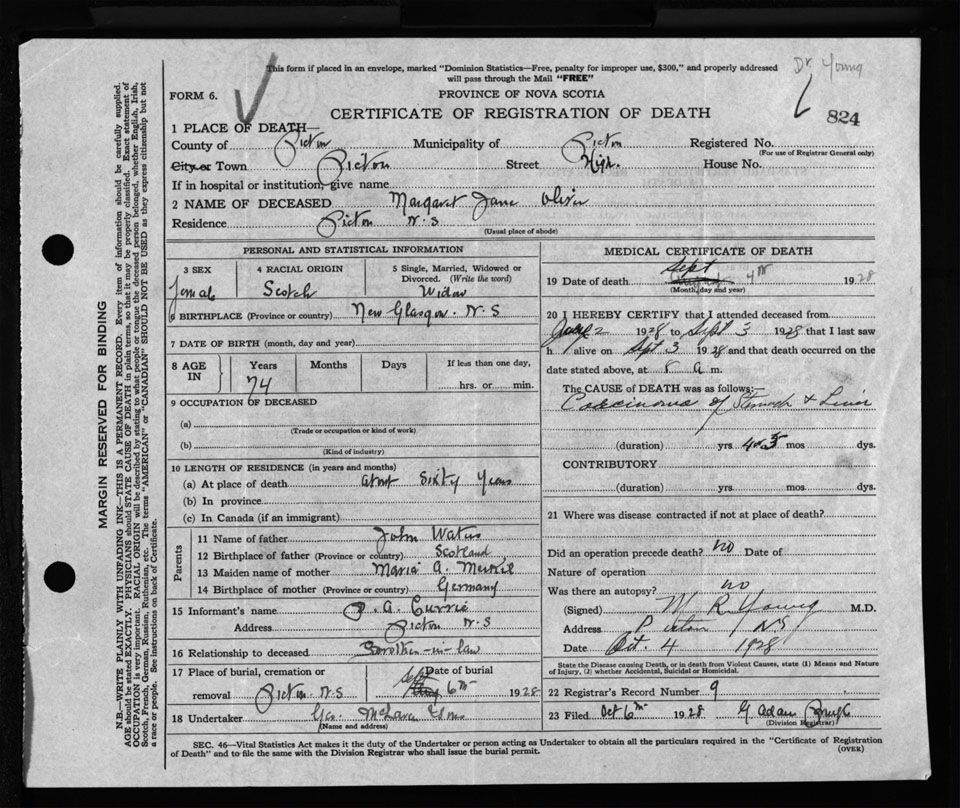 Dr Young
This form if placed in an envelope, marked "Dominion Statistics—Free, penalty for improper use, $300," and properly addressed
will pass through the Mail "FREE"
FORM 6.
PROVINCE OF NOVA SCOTIA
CERTIFICATE OF REGISTRATION OF DEATH
824
1 PLACE OF DEATH—
County of Pictou Municipality of Pictou Registered No.
(For use of Registrar General only)
City or Town Pictou Street High. House No.
If in hospital or institution, give name
2 NAME OF DECEASED Margaret Jane Oliver
Residence Pictou N.S
(Usual place of abode)
PERSONAL AND STATISTICAL INFORMATION
3 SEX 4 RACIAL ORIGIN 5 Single, Married, Widowed or Divorced. (Write the word)
Female Scotch Widow
6 BIRTHPLACE (Province or country) New Glasgow. N.S
7 DATE OF BIRTH (month, day and year)
8 AGE IN Years Months Days If less than one day,
74 hrs. or min.
9 OCCUPATION OF DECEASED
(a)
(Trade or occupation or kind of work)
(b)
(Kind of industry)
10 LENGTH OF RESIDENCE (in years and months)
(a) At place of death about Sixty Years
(b) In province
(c) In Canada (if an immigrant)
Parents
11 Name of father John Waters
12 Birthplace of father (Province or country) Scotland
13 Maiden name of mother Maria A.
14 Birthplace of mother (Province or country) Germany
15 Informant's name A. Currie
Address Pictou N.S
16 Relationship to deceased Brother-in-law
17 Place of burial, cremation or removal Pictou N.S
Date of burial Sept 6th 1928
18 Undertaker Geo. McLaren & Sons
(Name and address)
MEDICAL CERTIFICATE OF DEATH
19 Date of death Sept 4th 1928
(Month, day and year)
20 I HEREBY CERTIFY that I attended deceased from
2 1928 to Sept 3 1928 that I last saw
h alive on Sept 3 1928 and that death occurred on the
date stated above, at a m.
The CAUSE of DEATH was as follows:—
Carcinoma of Stomach & Liver
(duration) yrs 4 or 5 mos dys.
CONTRIBUTORY
(duration) yrs mos dys.
21 Where was disease contracted if not at place of death?
Did an operation precede death? no Date of
Nature of operation
Was there an autopsy? no
(Signed) W R Young M.D.
Address Pictou NS
Date Oct. 4 1928
State the Disease causing Death, or in death from Violent Causes, state (1) Means and Nature
of Injury, (2) whether Accidental, Suicidal or Homicidal.
22 Registrar's Record Number 9
23 Filed Oct 6th 1928 G. Adam
(Division Registrar)
SEC. 46—Vital Statistics Act makes it the duty of the Undertaker or person acting as Undertaker to obtain all the particulars required in the "Certificate of Registration
of Death" and to file the same with the Division Registrar who shall issue the burial permit.
(OVER)
MARGIN RESERVED FOR BINDING
N.B.—WRITE PLAINLY WITH UNFADING INK—THIS IS A PERMANENT RECORD. Every item of information should be carefully supplied.
AGE should be stated EXACTLY. PHYSICIANS should STATE CAUSE OF DEATH in plain terms, so that it may be properly classified. Exact statement of
OCCUPATION is very important. RACIAL ORIGIN will be described by stating to what people or tongue the deceased person belonged, whether English, Irish,
Scotch, French, German, Russian, Ruthenian, etc. The terms "AMERICAN" or "CANADIAN" SHOULD NOT BE USED as they express citizenship but not
a race or people. See instructions on back of Certificate.